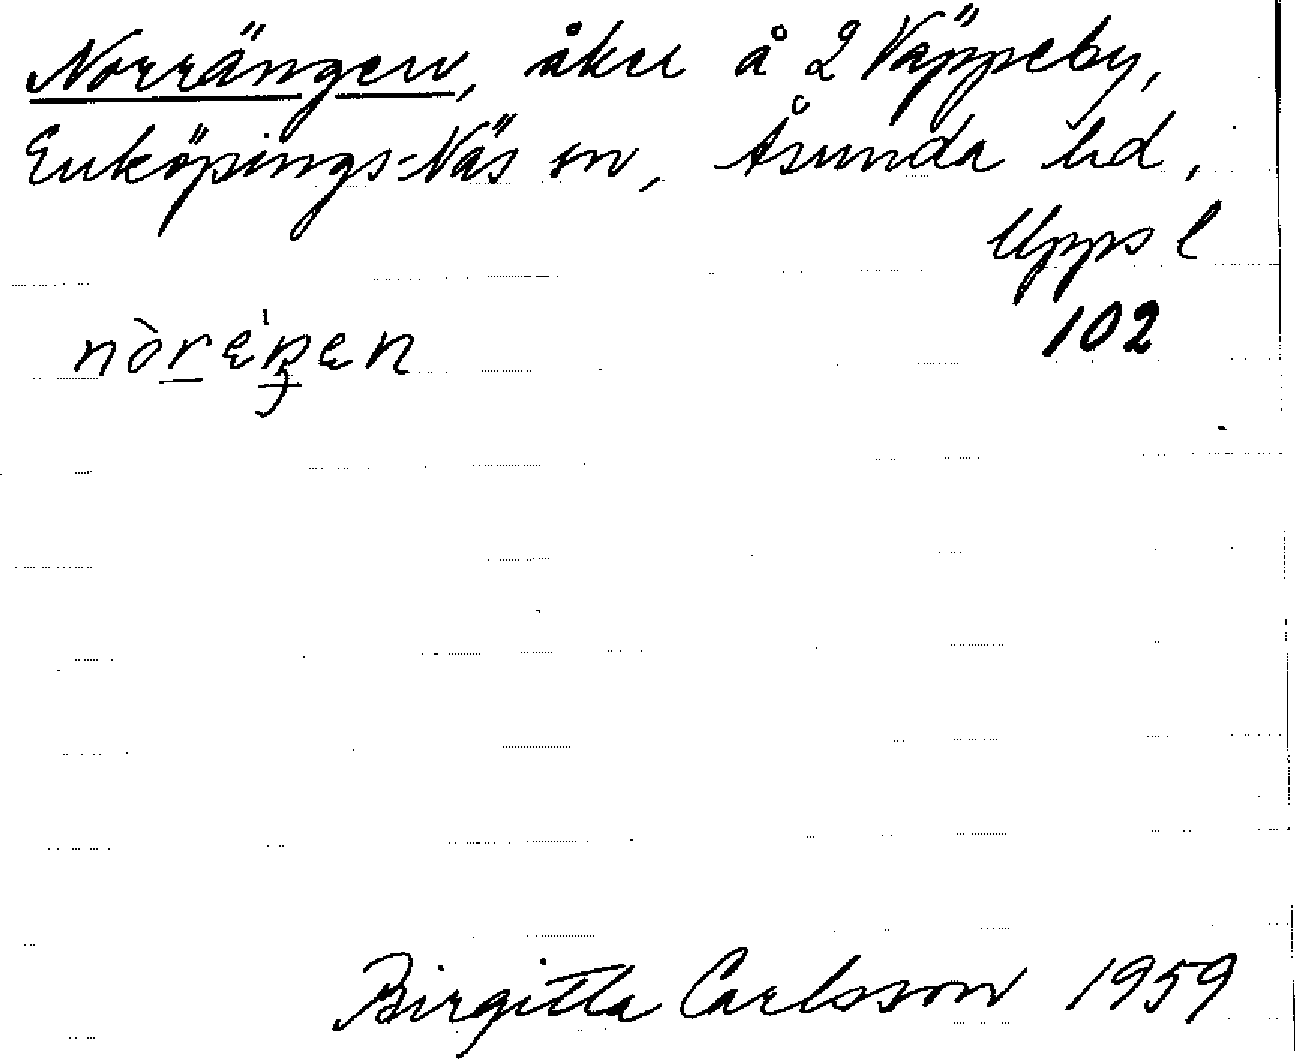 Norrängen, åker å 2 Väppeby,
Enköpings-Näs sn, Åsunda hd,
Upps l
102
nòrέŋen
Birgitta Carlsson 1959